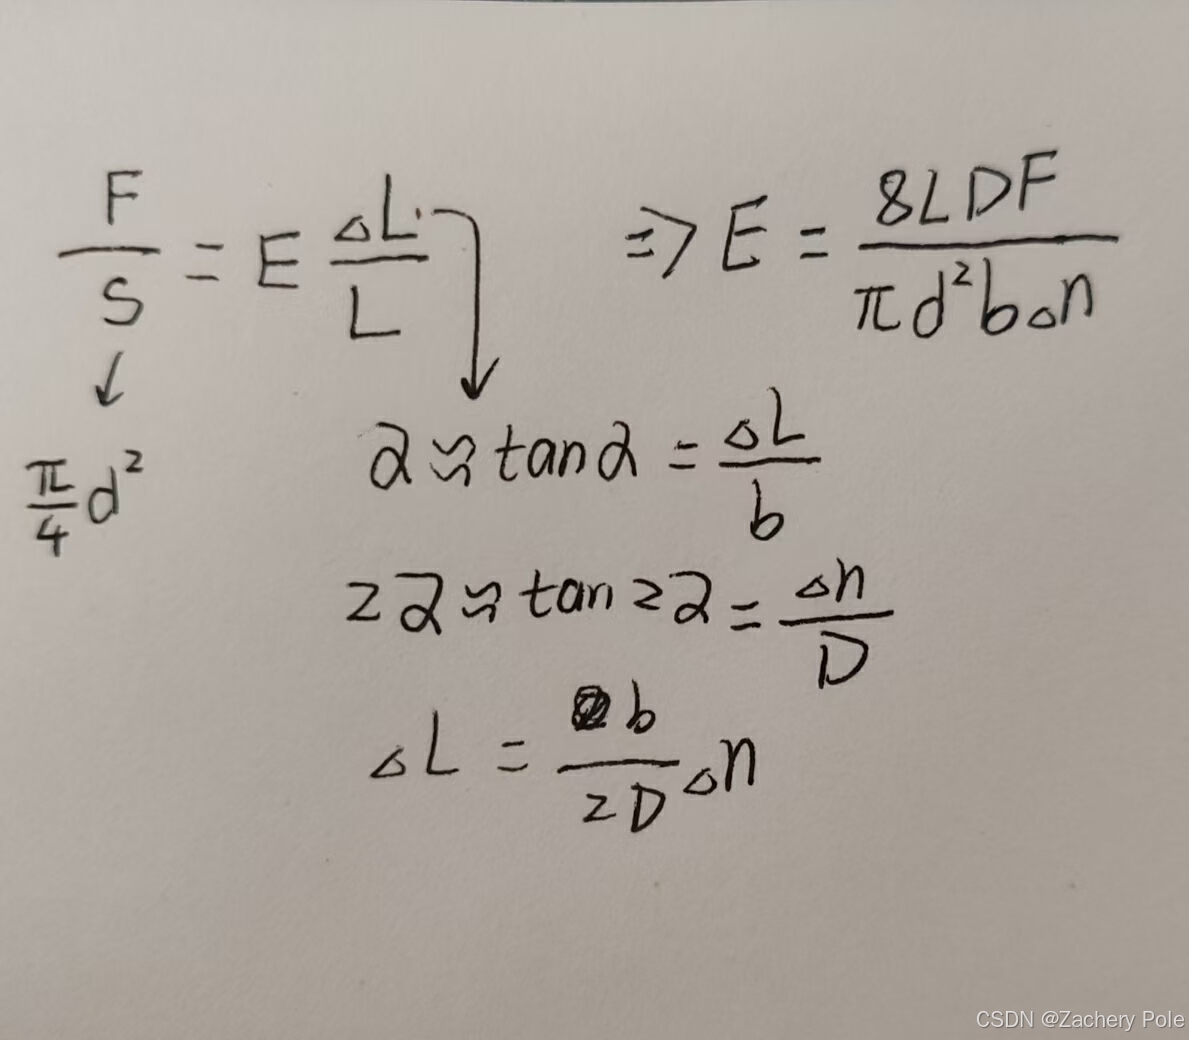 F/S = E ΔL/L ⇒ E = 8LDF/πd²bΔn
↓
π/4 d²
α ≈ tanα = ΔL/b
2α ≈ tan2α = Δn/D
ΔL = b/2D Δn
CSDN @Zachery Pole